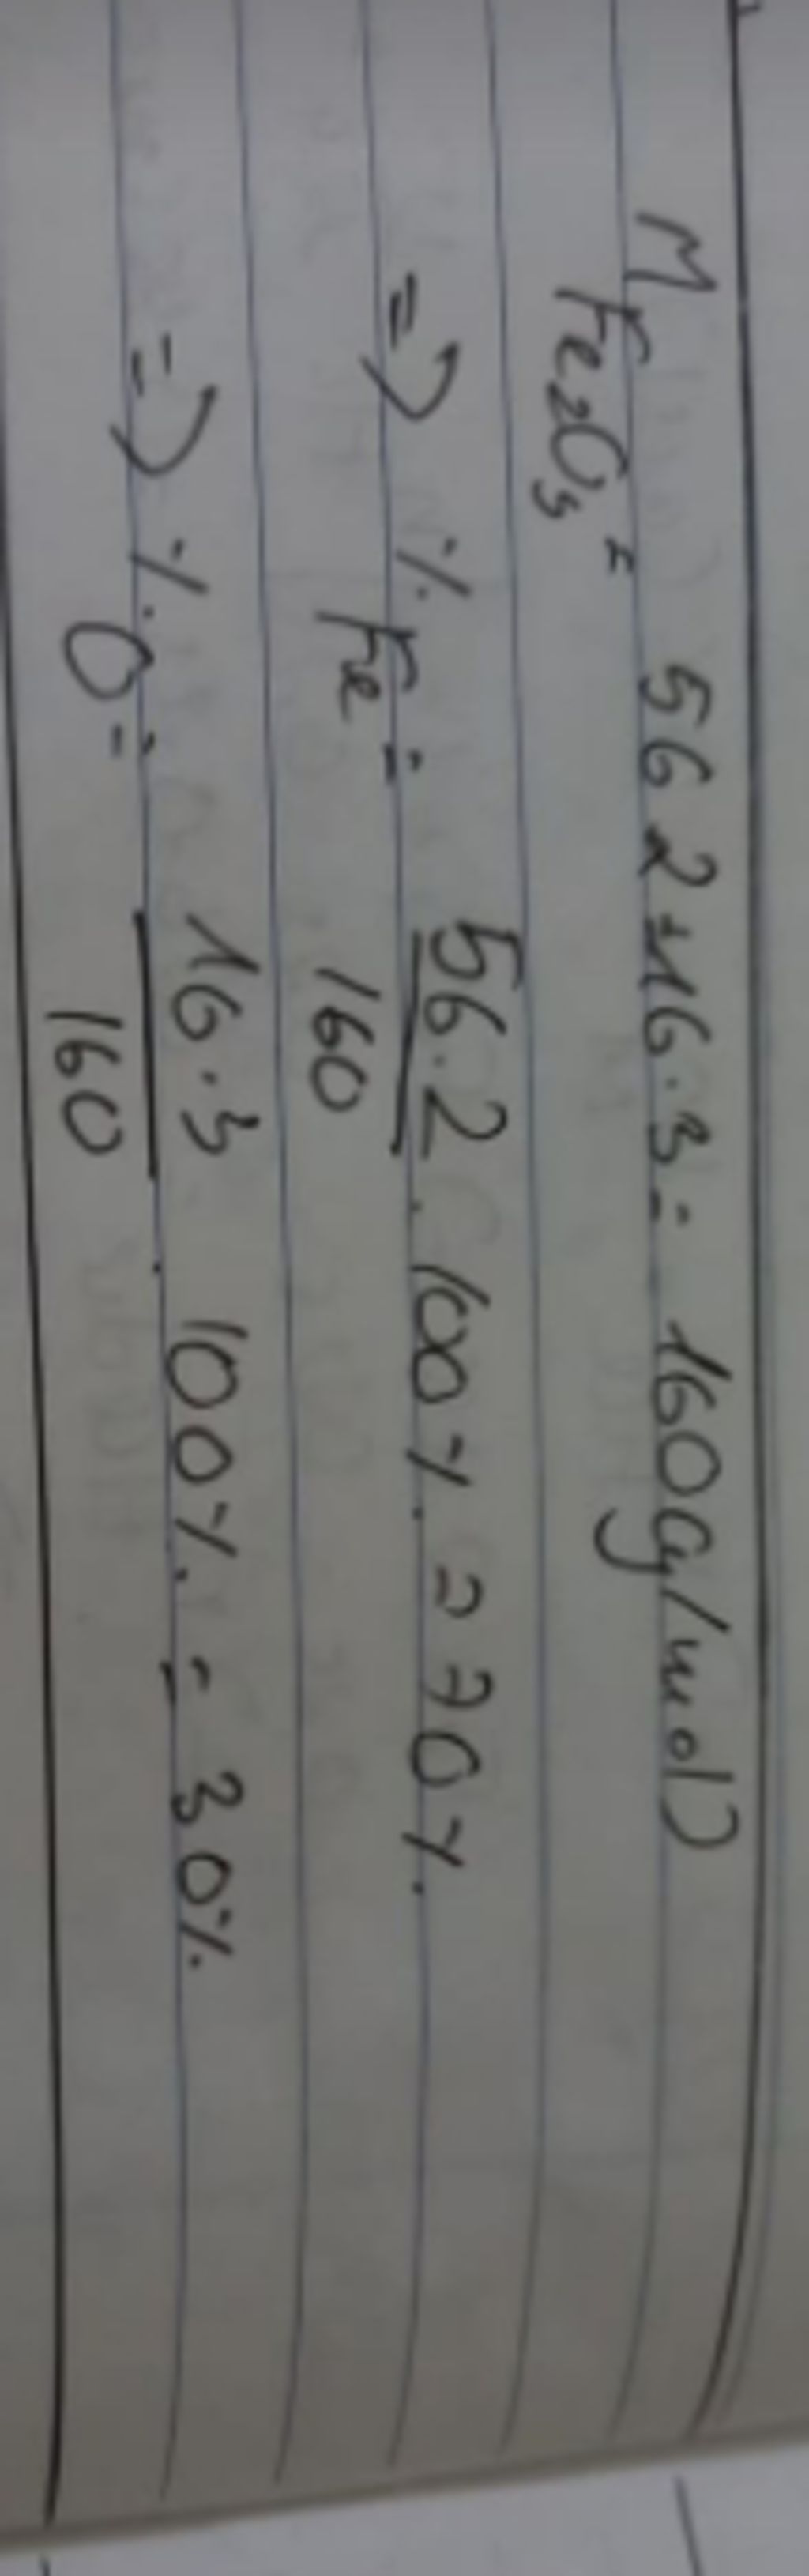 M Fe2O3 = 56 2+16.3= 160g/mol)
=> % Fe = 56.2/160 . 100% = 70%
=> % O = 16.3/160 . 100% = 30%